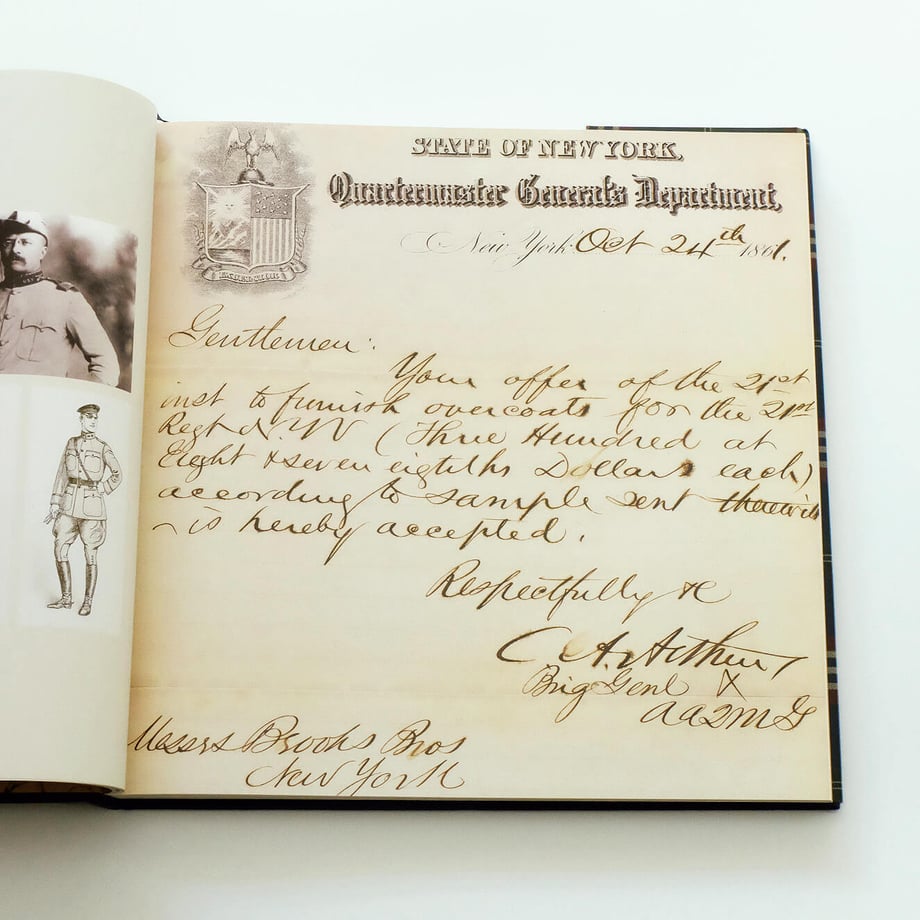 STATE OF NEW YORK.
Quartermaster General's Department,
New York Oct 24th 1861.
EXCELSIOR
Gentlemen:
Your offer of the 21st
inst to furnish overcoats for the 21st
Regt N.Y.V (Three Hundred at
Eight & seven eigtths Dollars each)
according to sample sent therewith
- is hereby accepted.
Respectfully &c
C. A. Arthur
Brig Genl
a a Q M G
Messrs Brooks Bros
New York